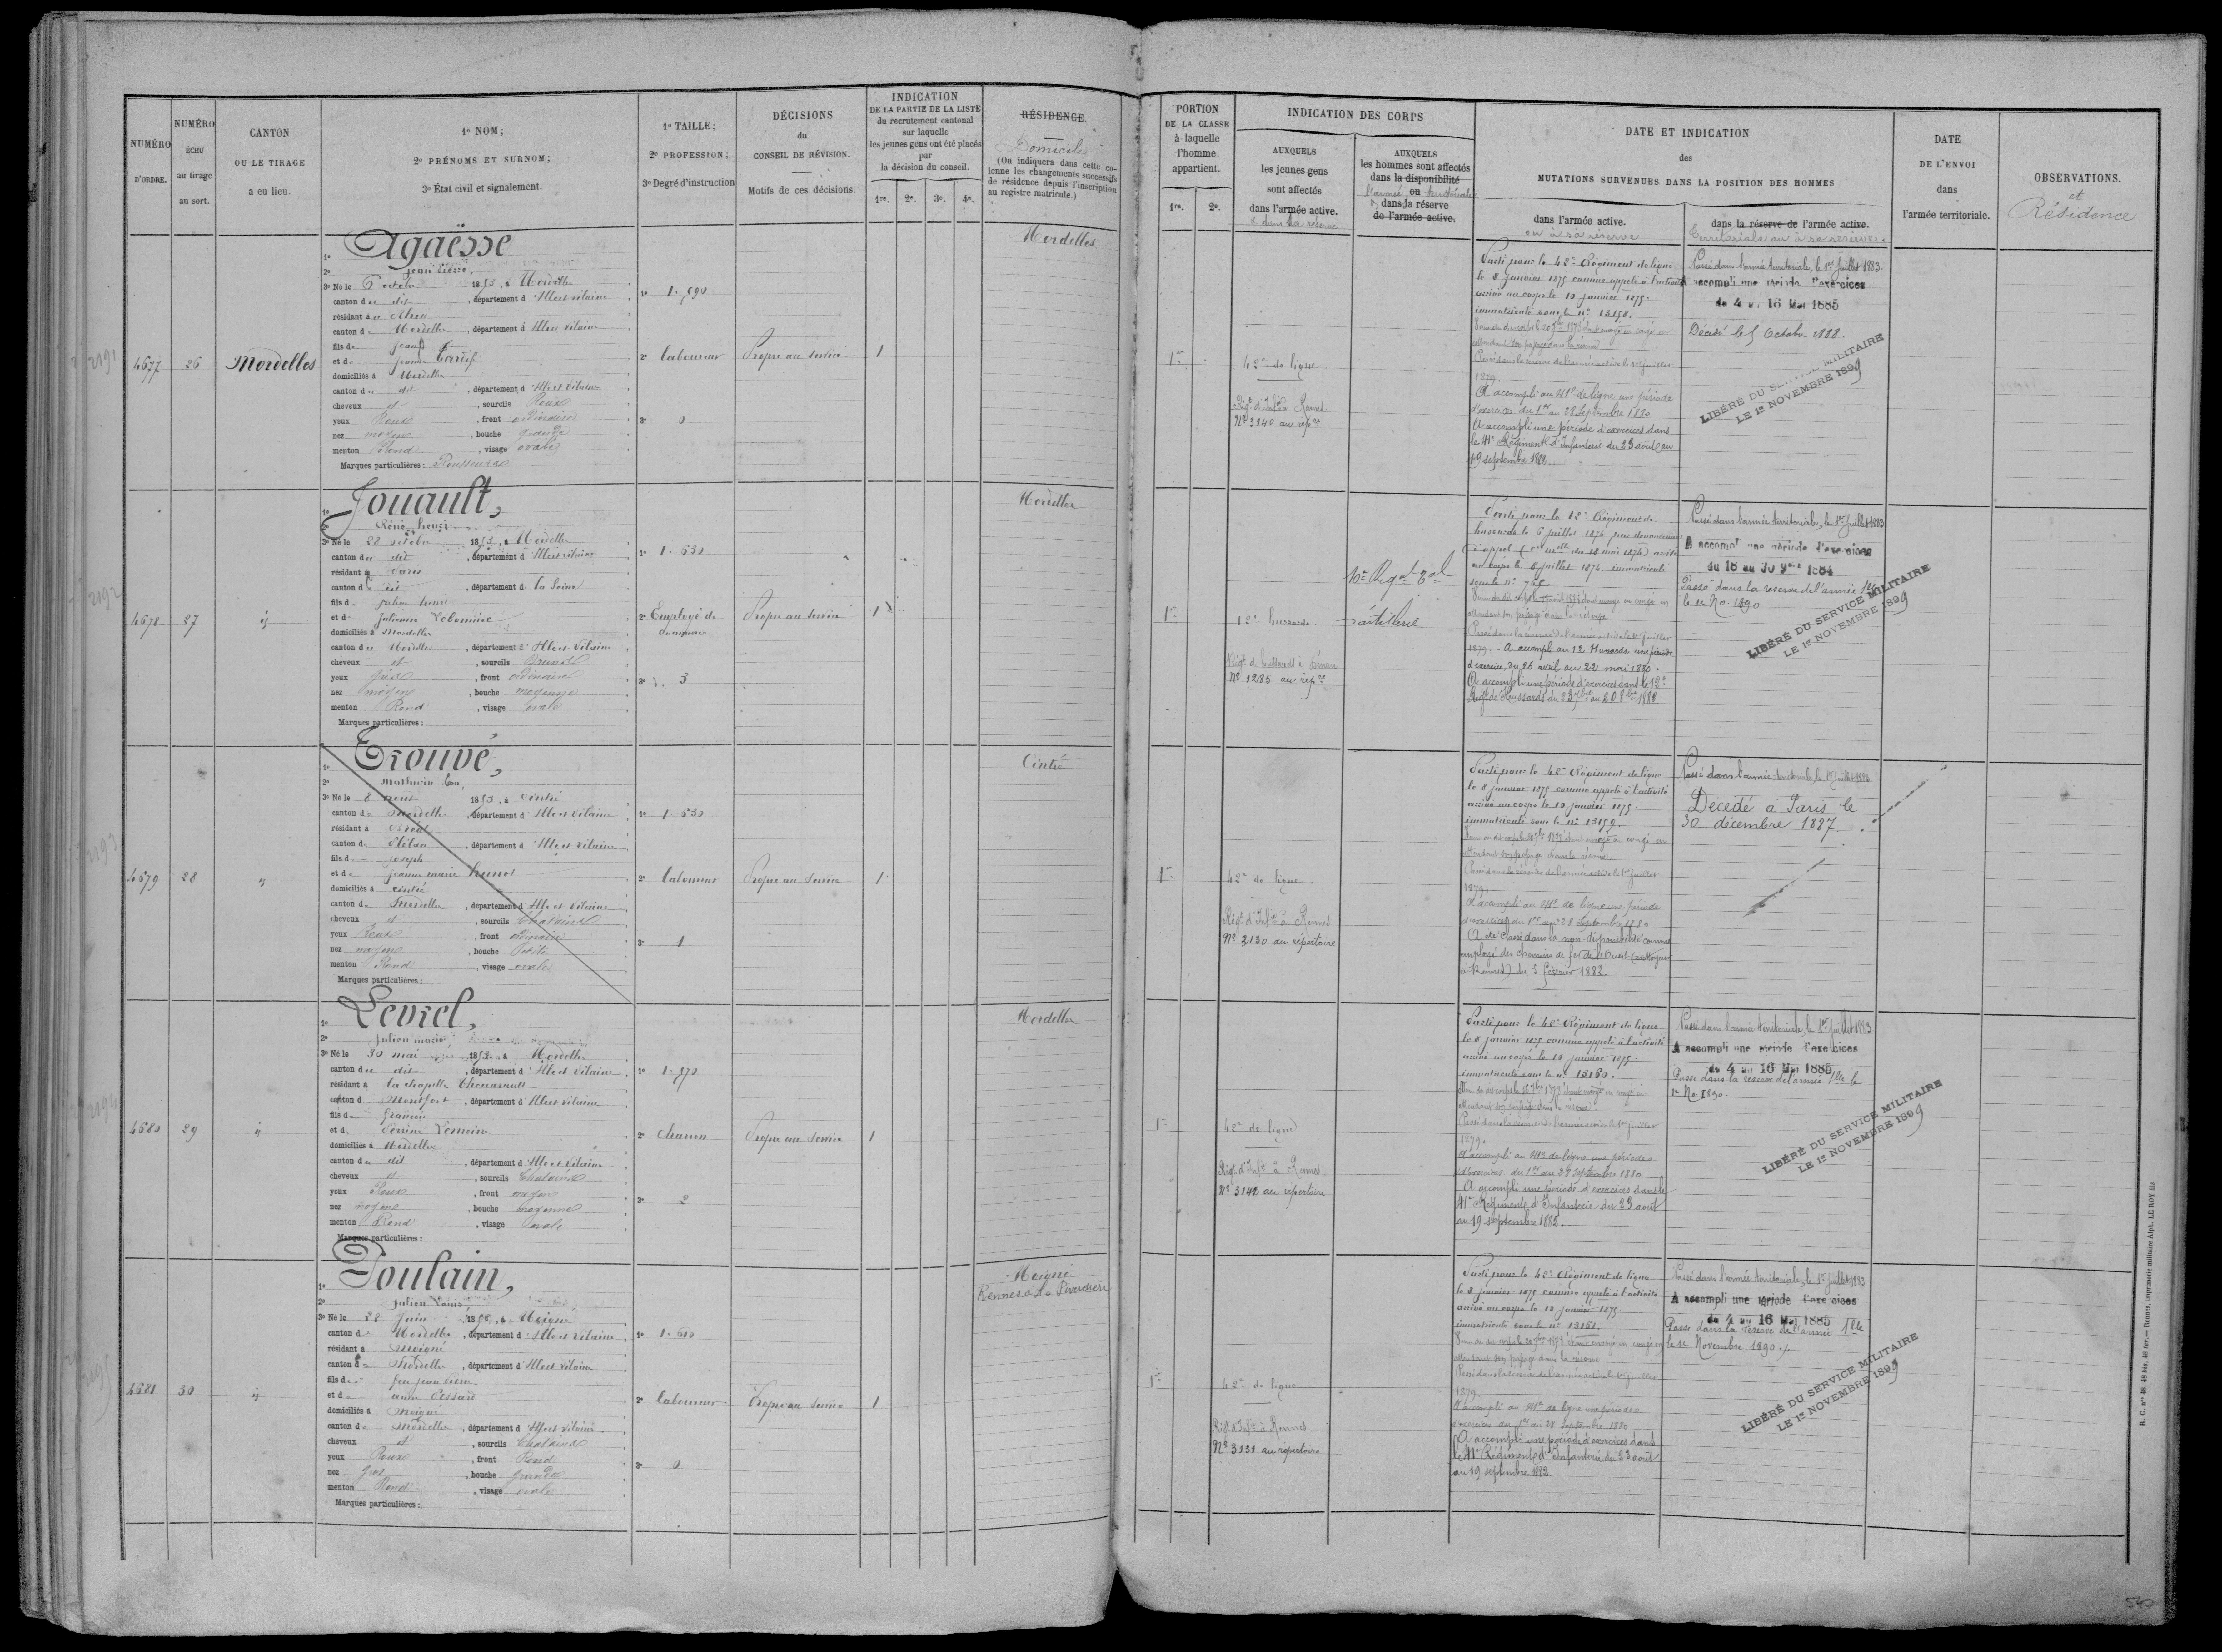 NUMÉRO D'ORDRE.
NUMÉRO ÉCHU au tirage au sort.
CANTON OU LE TIRAGE a eu lieu.
1º NOM;
2º PRÉNOMS ET SURNOM;
3º État civil et signalement.
1º TAILLE;
2º PROFESSION;
3º Degré d'instruction
DÉCISIONS
du
CONSEIL DE RÉVISION.
Motifs de ces décisions.
INDICATION
DE LA PARTIE DE LA LISTE
du recrutement cantonal
sur laquelle
les jeunes gens ont été placés
par
la décision du conseil.
1re. 2e. 3e. 4e.
RÉSIDENCE.
Domicile
(On indiquera dans cette co-
lonne les changements successifs
de résidence depuis l'inscription
au registre matricule.)
PORTION
DE LA CLASSE
à laquelle
l'homme
appartient.
1re. 2e.
INDICATION DES CORPS
AUXQUELS
les jeunes gens
sont affectés
dans l'armée active.
& dans la réserve
AUXQUELS
les hommes sont affectés
dans la disponibilité
ou
l'armée territoriale
dans la réserve
de l'armée active.
DATE ET INDICATION
des
MUTATIONS SURVENUES DANS LA POSITION DES HOMMES
dans l'armée active.
ou à sa réserve
dans la réserve de l'armée active.
Territoriale ou à sa réserve.
DATE
DE L'ENVOI
dans
l'armée territoriale.
OBSERVATIONS.
et
Résidence
4677
26
Mordelles
1º Agaësse
2º Jean Pierre,
3º Né le 6 octobre 1853, à Mordelles
canton du dit, département d'Ille et Vilaine
résidant à
canton de Mordelles, département d'Ille et Vilaine
fils de Jean
et de Jeanne Tardif
domiciliés à Mordelles
canton du dit, département d'Ille et Vilaine
cheveux et, sourcils Roux
yeux Roux, front ordinaire
nez moyen, bouche grande
menton Rond, visage ovale
Marques particulières: Rousseurs
1º 1.590
2º laboureur
3º 0
Propre au service
1
Mordelles
1re
42e de ligne
Régt d'Infie à Rennes
Nº 3140 au répre
Parti pour le 42e Régiment de ligne
le 8 janvier 1875 comme appelé à l'activité
arrivé au corps le 10 janvier 1875.
immatriculé sous le nº 13158.
attendant son passage dans la réserve
Passé dans la réserve de l'armée active le 1er juillet
1879.
A accompli au 41e de ligne une période
d'exercices du 1er au 28 septembre 1880
A accompli une période d'exercices dans
le 41e Régiment d'Infanterie du 23 août au
19 septembre 1882.
Passé dans l'armée territoriale, le 1er Juillet 1883.
A accompli une période d'exercices
du 4 au 16 Mai 1885
Décédé le 5 Octobre 1888.
LIBÉRÉ DU SERVICE MILITAIRE
LE 1er NOVEMBRE 1899
4678
27
id
1º Jouault,
2º René henri
3º Né le 28 octobre 1853, à Mordelles
canton du dit, département d'Ille et Vilaine
résidant à Paris
canton du dit, département de la Seine
fils de Julien henri
et de Julienne
domiciliés à Mordelles
canton de Mordelles, département d'Ille et Vilaine
cheveux et, sourcils Bruns
yeux Gris, front ordinaire
nez moyen, bouche moyenne
menton Rond, visage ovale
Marques particulières:
1º 1.630
2º Employé de commerce
3º 3
Propre au service
1
Mordelles
1re
12e hussards.
Régt de hussards à Dinan
Nº 1285 au répre
10e Régt Tal
d'artillerie
Parti pour le 12e Régiment de
hussards le 6 juillet 1874
d'appel (cre mlle du 18 mai 1874) arrivé
au corps le 8 juillet 1874 immatriculé
sous le nº 768
attendant son passage dans la réserve
Passé dans la réserve de l'armée active le 1er juillet
1879. A accompli au 12 Hussards une période
d'exercices, du 26 avril au 22 mai 1880.
A accompli une période d'exercices dans le 12e
Régt de Hussards du 23 7bre au 20 8bre 1882
Passé dans l'armée territoriale, le 1er Juillet 1883
A accompli une période d'exercices
du 18 au 30 9bre 1884
Passé dans la réserve de l'armée Tle
le 1r No. 1890
LIBÉRÉ DU SERVICE MILITAIRE
LE 1er NOVEMBRE 1899
4679
28
id
1º Trouvé,
2º Mathurin
3º Né le 8 1853, à Cintré
canton de Mordelles, département d'Ille et Vilaine
résidant à
canton de, département d'Ille et Vilaine
fils de Joseph
et de Jeanne marie
domiciliés à Cintré
canton de Mordelles, département d'Ille et Vilaine
cheveux et, sourcils Chatains
yeux Roux, front ordinaire
nez moyen, bouche Petite
menton Rond, visage ovale
Marques particulières:
1º 1.630
2º laboureur
3º 1
Propre au service
1
Cintré
1re
42e de ligne
Régt d'Infie à Rennes
Nº 3130 au répertoire
Parti pour le 42e Régiment de ligne
le 8 janvier 1875 comme appelé à l'activité
arrivé au corps le 10 janvier 1875.
immatriculé sous le nº 13159.
attendant son passage dans la réserve
Passé dans la réserve de l'armée active le 1er juillet
1879.
A accompli au 41e de ligne une période
d'exercices du 1er au 28 Septembre 1880
A été classé dans la non disponibilité comme
employé des chemins de fer de l'Ouest
à Rennes) du 5 février 1882.
Passé dans l'armée territoriale, le 1er Juillet 1883.
Décédé à Paris le
30 décembre 1887.
4680
29
id
1º Levrel,
2º Julien marie
3º Né le 30 mai 1853, à Mordelles
canton du dit, département d'Ille et Vilaine
résidant à La chapelle Thouarault
canton d Montfort, département d'Ille et Vilaine
fils de
et de Perrine Lemoine
domiciliés à Mordelles
canton du dit, département d'Ille et Vilaine
cheveux et, sourcils Chatains
yeux Roux, front moyen
nez moyen, bouche moyenne
menton Rond, visage ovale
Marques particulières:
1º 1.570
2º Charron
3º 2
Propre au service
1
Mordelles
1re
42e de ligne
Régt d'Infie à Rennes
Nº 3142 au répertoire
Parti pour le 42e Régiment de ligne
le 8 janvier 1875 comme appelé à l'activité
arrivé au corps le 10 janvier 1875.
immatriculé sous le nº 13160.
attendant son passage dans la réserve
Passé dans la réserve de l'armée active le 1er juillet
1879.
A accompli au 41e de ligne une période
d'exercices du 1er au 28 Septembre 1880
A accompli une période d'exercices dans le
41e Régiment d'Infanterie du 23 août
au 19 septembre 1882.
Passé dans l'armée territoriale, le 1er Juillet 1883
A accompli une période d'exercices
du 4 au 16 Mai 1885
Passé dans la réserve de l'armée Tle le
1r No 1890.
LIBÉRÉ DU SERVICE MILITAIRE
LE 1er NOVEMBRE 1899
4681
30
id
1º Poulain,
2º Julien Louis
3º Né le 28 Juin, à Moigné
canton de Mordelles, département d'Ille et Vilaine
résidant à Moigné
canton de Mordelles, département d'Ille et Vilaine
fils de feu Jean Pierre
et de anne Tessard
domiciliés à Moigné
canton de Mordelles, département d'Ille et Vilaine
cheveux et, sourcils Chatains
yeux Roux, front Rond
nez Gros, bouche grande
menton Rond, visage ovale
Marques particulières:
1º 1.610
2º laboureur
3º 0
Propre au service
1
Moigné
Rennes à la
1re
42e de ligne
Régt d'Infie à Rennes
Nº 3131 au répertoire
Parti pour le 42e Régiment de ligne
le 8 janvier 1875 comme appelé à l'activité
arrivé au corps le 10 janvier 1875
immatriculé sous le nº 13161.
attendant son passage dans la réserve
Passé dans la réserve de l'armée active le 1er juillet
1879.
A accompli au 41e de ligne une période
d'exercices du 1er au 28 Septembre 1880
A accompli une période d'exercices dans
le 41e Régiment d'Infanterie du 23 août
au 19 septembre 1882.
Passé dans l'armée territoriale, le 1er Juillet 1883
A accompli une période d'exercices
du 4 au 16 Mai 1885
Passé dans la réserve de l'armée Tle
le 1r Novembre 1890.
LIBÉRÉ DU SERVICE MILITAIRE
LE 1er NOVEMBRE 1899
2191
2192
2193
2194
2195
540